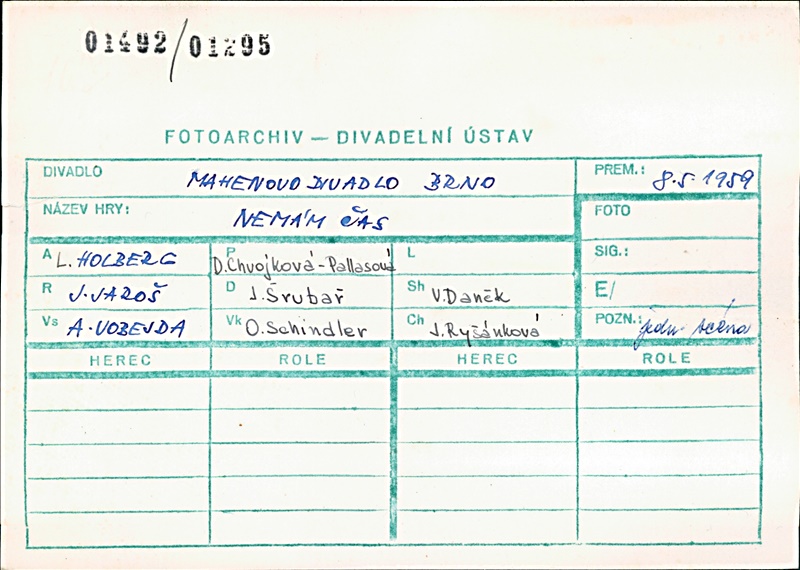 01492/01295
FOTOARCHIV — DIVADELNÍ ÚSTAV
DIVADLO MAHENOVO DIVADLO BRNO PREM.: 8.5.1959
NÁZEV HRY: NEMÁM ČAS FOTO
A L. HOLBERG P D. Chvojková-Pallasová L SIG.:
R J. JAROŠ D J. Šrubař Sh V. Daněk E/
Vs A. VOBEJDA Vk O. Schindler Ch J. Ryšánková POZN.: jedn. scéna
HEREC ROLE HEREC ROLE